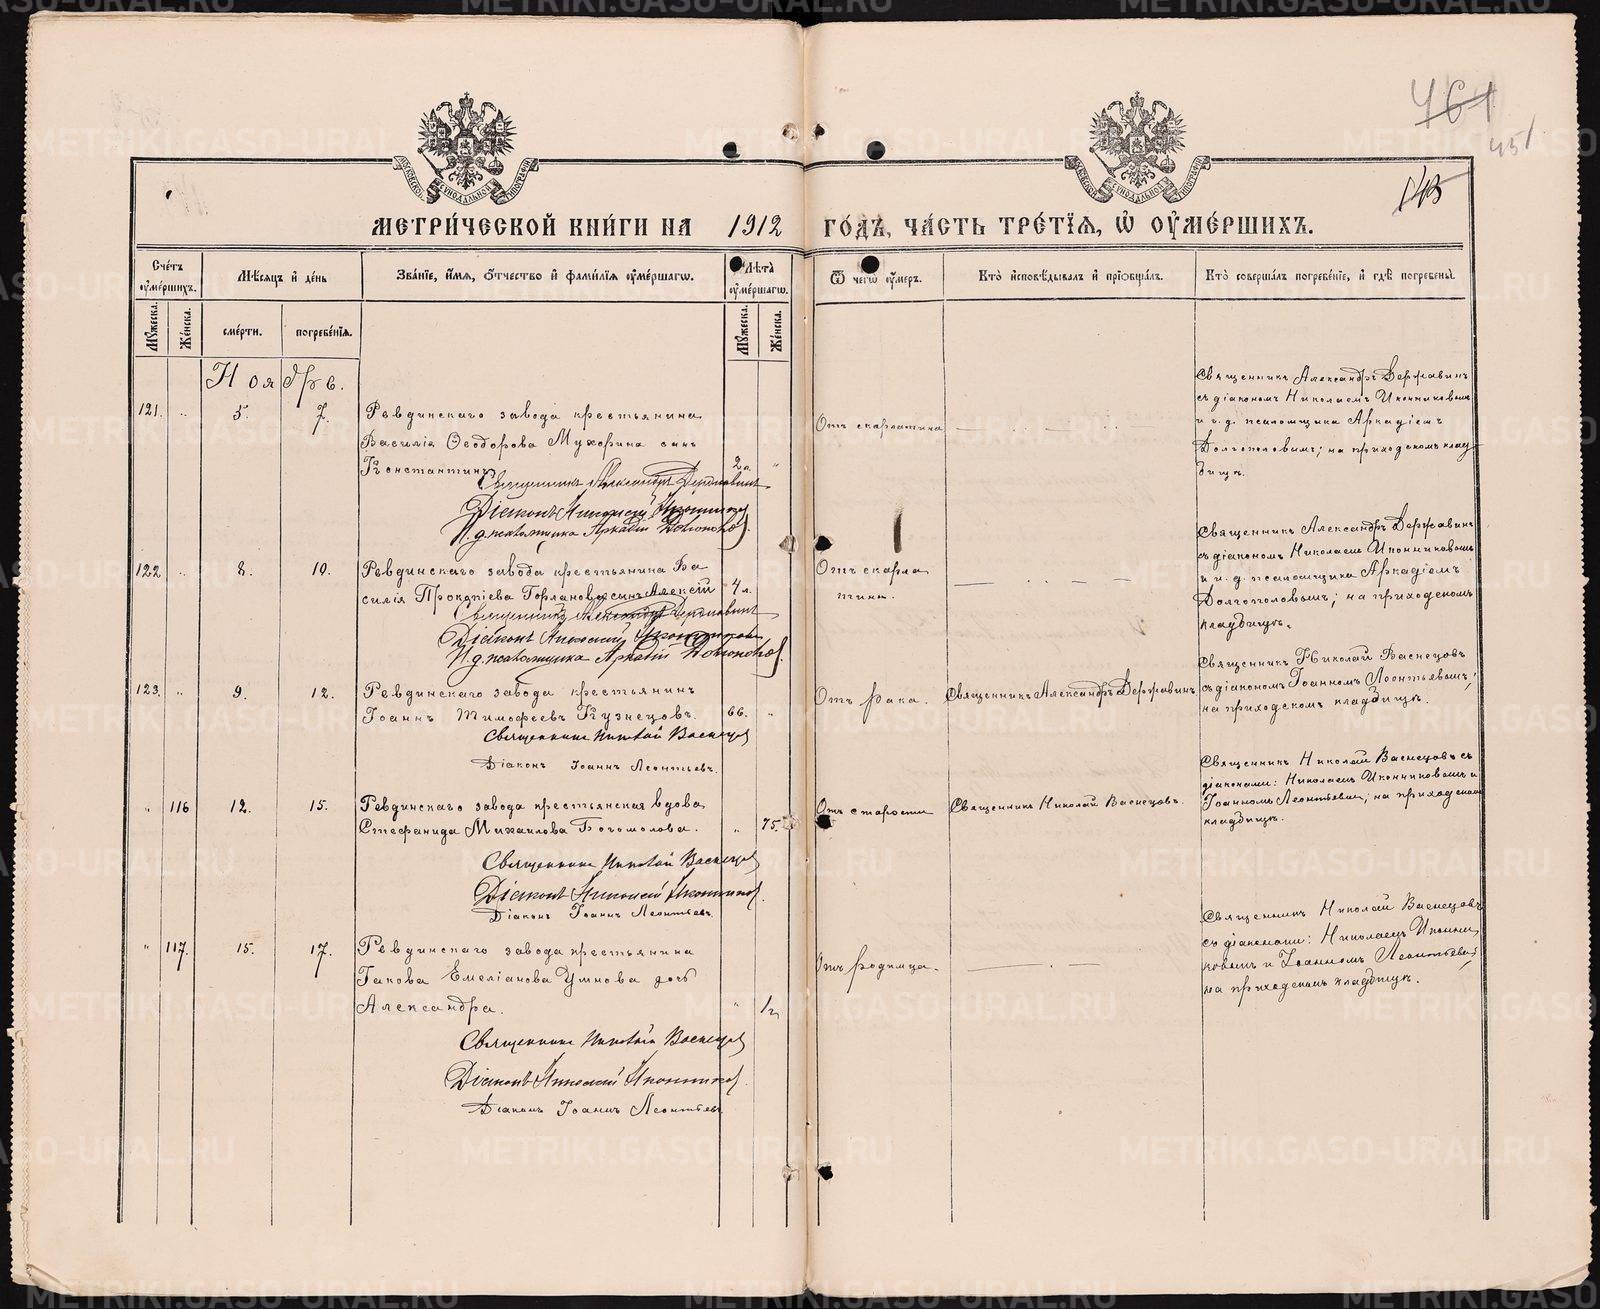 461
451
143
МЕТРИ́ЧЕСКОЙ КНИ́ГИ НА 1912 ГО́ДЪ, ЧА́СТЬ ТРЕ́ТЇѦ, Ѡ҆ ОУ҆МЕ́РШИХЪ.
Сче́тъ оу҆ме́ршихъ.
Мѣ́сѧцъ и҆ де́нь
Зва́нїе, и҆́мѧ, ѻ҆́тчество и҆ фами́лїѧ оу҆ме́ршагѡ.
Лѣ́та оу҆ме́ршагѡ.
Ѿ чегѡ̀ оу҆́меръ.
Кто̀ и҆сповѣ́дывалъ и҆ прїѻбща́лъ.
Кто̀ соверша́лъ погребе́нїе, и҆ гдѣ̀ погребены̀.
Мꙋ́жеска.
Же́нска.
сме́рти.
погребе́нїѧ.
Мꙋ́жеска.
Же́нска.
Ноябрь.
121. " 5. 7. Ревдинскаго завода крестьянина
Василія Ѳеодорова Мухорина сынъ
Константинъ 2 л. "
Священникъ Александръ Державинъ
Діаконъ Николай Иконниковъ
И. д. псаломщика Аркадій Долгополовъ
Отъ скарлатина
Священникъ Александръ Державинъ
съ діакономъ Николаемъ Иконниковымъ
и и. д. псаломщика Аркадіемъ
Долгополовымъ; на приходскомъ клад
бищѣ.
122 " 8. 10. Ревдинскаго завода крестьянина Ва
силія Прокопіева Горланова сынъ Алексій 4 л.
Священникъ Александръ Державинъ
Діаконъ Николай Иконниковъ
И. д. псаломщика Аркадій Долгополовъ
Отъ скарла
тины.
Священникъ Александръ Державинъ
съ діакономъ Николаемъ Иконниковымъ
и и. д. псаломщика Аркадіемъ
Долгополовымъ; на приходскомъ
кладбищѣ.
123. " 9. 12. Ревдинскаго завода крестьянинъ
Іоаннъ Тимофеевъ Кузнецовъ. 66. "
Священникъ Николай Васнецовъ
Діаконъ Іоаннъ Леонтьевъ.
Отъ рака.
Священникъ Александръ Державинъ
Священникъ Николай Васнецовъ
съ діакономъ Іоанномъ Леонтьевымъ;
на приходскомъ кладбищѣ.
" 116 12. 15. Ревдинскаго завода крестьянская вдова
Стефанида Михаилова Богомолова. " 75.
Священникъ Николай Васнецовъ
Діаконъ Николай Иконниковъ.
Діаконъ Іоаннъ Леонтьевъ.
Отъ старости
Священникъ Николай Васнецовъ.
Священникъ Николай Васнецовъ съ
діаконами: Николаемъ Иконниковымъ и
Іоанномъ Леонтьевымъ; на приходскомъ
кладбищѣ.
" 117. 15. 17. Ревдинскаго завода крестьянина
Іакова Емеліанова Умнова дочь
Александра. " 1 г.
Священникъ Николай Васнецовъ
Діаконъ Николай Иконниковъ
Діаконъ Іоаннъ Леонтьевъ
Отъ родимца.
Священникъ Николай Васнецовъ
съ діаконами: Николаемъ Иконни
ковымъ и Іоанномъ Леонтьевымъ;
на приходскомъ кладбищѣ.
METRIKI.GASO-URAL.RU